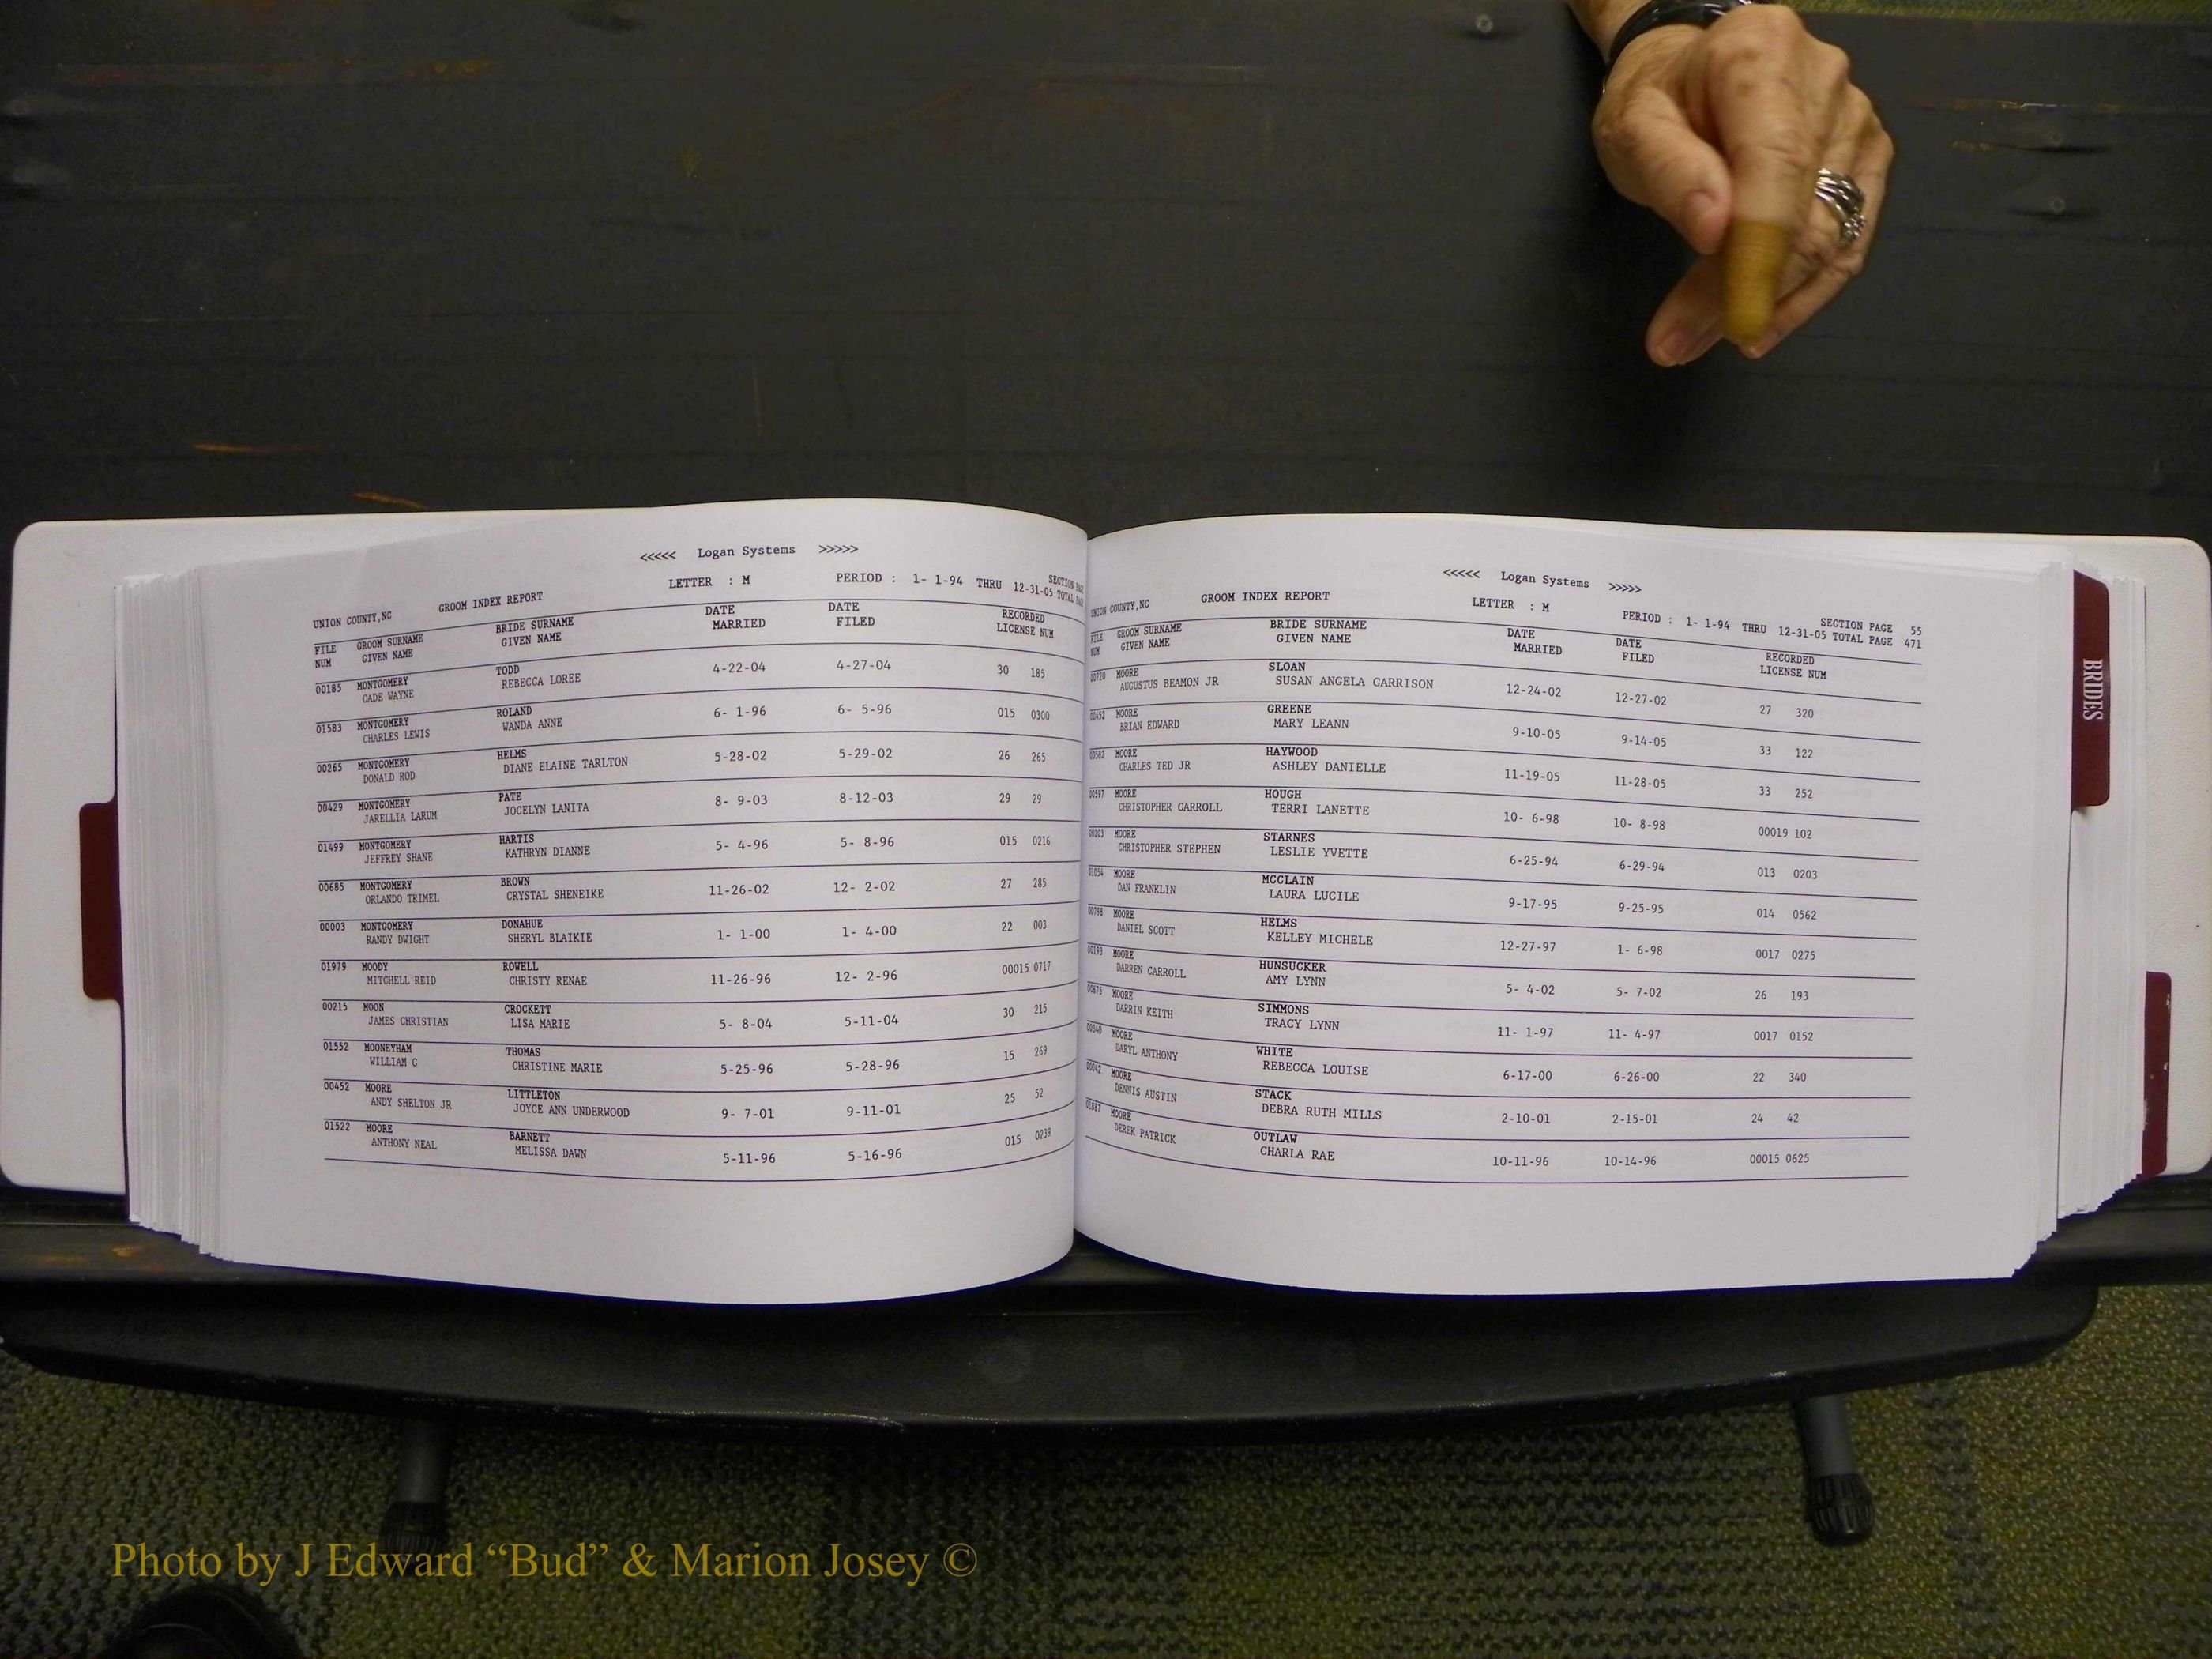 <<<<< Logan Systems >>>>>
LETTER : M PERIOD : 1- 1-94 THRU 12-31-05 SECTION TOTAL
UNION COUNTY,NC GROOM INDEX REPORT
FILE GROOM SURNAME BRIDE SURNAME DATE DATE RECORDED
NUM GIVEN NAME GIVEN NAME MARRIED FILED LICENSE NUM
00185 MONTGOMERY TODD 4-22-04 4-27-04 30 185
CADE WAYNE REBECCA LOREE
01583 MONTGOMERY ROLAND 6- 1-96 6- 5-96 015 0300
CHARLES LEWIS WANDA ANNE
00265 MONTGOMERY HELMS 5-28-02 5-29-02 26 265
DONALD ROD DIANE ELAINE TARLTON
00429 MONTGOMERY PATE 8- 9-03 8-12-03 29 29
JARELLIA LARUM JOCELYN LANITA
01499 MONTGOMERY HARTIS 5- 4-96 5- 8-96 015 0216
JEFFREY SHANE KATHRYN DIANNE
00685 MONTGOMERY BROWN 11-26-02 12- 2-02 27 285
ORLANDO TRIMEL CRYSTAL SHENEIKE
00003 MONTGOMERY DONAHUE 1- 1-00 1- 4-00 22 003
RANDY DWIGHT SHERYL BLAIKIE
01979 MOODY ROWELL 11-26-96 12- 2-96 00015 0717
MITCHELL REID CHRISTY RENAE
00215 MOON CROCKETT 5- 8-04 5-11-04 30 215
JAMES CHRISTIAN LISA MARIE
01552 MOONEYHAM THOMAS 5-25-96 5-28-96 15 269
WILLIAM G CHRISTINE MARIE
00452 MOORE LITTLETON 9- 7-01 9-11-01 25 52
ANDY SHELTON JR JOYCE ANN UNDERWOOD
01522 MOORE BARNETT 5-11-96 5-16-96 015 0239
ANTHONY NEAL MELISSA DAWN
<<<<< Logan Systems >>>>>
LETTER : M PERIOD : 1- 1-94 THRU 12-31-05 SECTION PAGE 55
TOTAL PAGE 471
UNION COUNTY,NC GROOM INDEX REPORT
FILE GROOM SURNAME BRIDE SURNAME DATE DATE RECORDED
NUM GIVEN NAME GIVEN NAME MARRIED FILED LICENSE NUM
00720 MOORE SLOAN 12-24-02 12-27-02 27 320
AUGUSTUS BEAMON JR SUSAN ANGELA GARRISON
00452 MOORE GREENE 9-10-05 9-14-05 33 122
BRIAN EDWARD MARY LEANN
00582 MOORE HAYWOOD 11-19-05 11-28-05 33 252
CHARLES TED JR ASHLEY DANIELLE
00597 MOORE HOUGH 10- 6-98 10- 8-98 00019 102
CHRISTOPHER CARROLL TERRI LANETTE
00203 MOORE STARNES 6-25-94 6-29-94 013 0203
CHRISTOPHER STEPHEN LESLIE YVETTE
01054 MOORE MCCLAIN 9-17-95 9-25-95 014 0562
DAN FRANKLIN LAURA LUCILE
00798 MOORE HELMS 12-27-97 1- 6-98 0017 0275
DANIEL SCOTT KELLEY MICHELE
00193 MOORE HUNSUCKER 5- 4-02 5- 7-02 26 193
DARREN CARROLL AMY LYNN
00675 MOORE SIMMONS 11- 1-97 11- 4-97 0017 0152
DARRIN KEITH TRACY LYNN
00340 MOORE WHITE 6-17-00 6-26-00 22 340
DARYL ANTHONY REBECCA LOUISE
00042 MOORE STACK 2-10-01 2-15-01 24 42
DENNIS AUSTIN DEBRA RUTH MILLS
01887 MOORE OUTLAW 10-11-96 10-14-96 00015 0625
DEREK PATRICK CHARLA RAE
BRIDES
Photo by J Edward “Bud” & Marion Josey ©